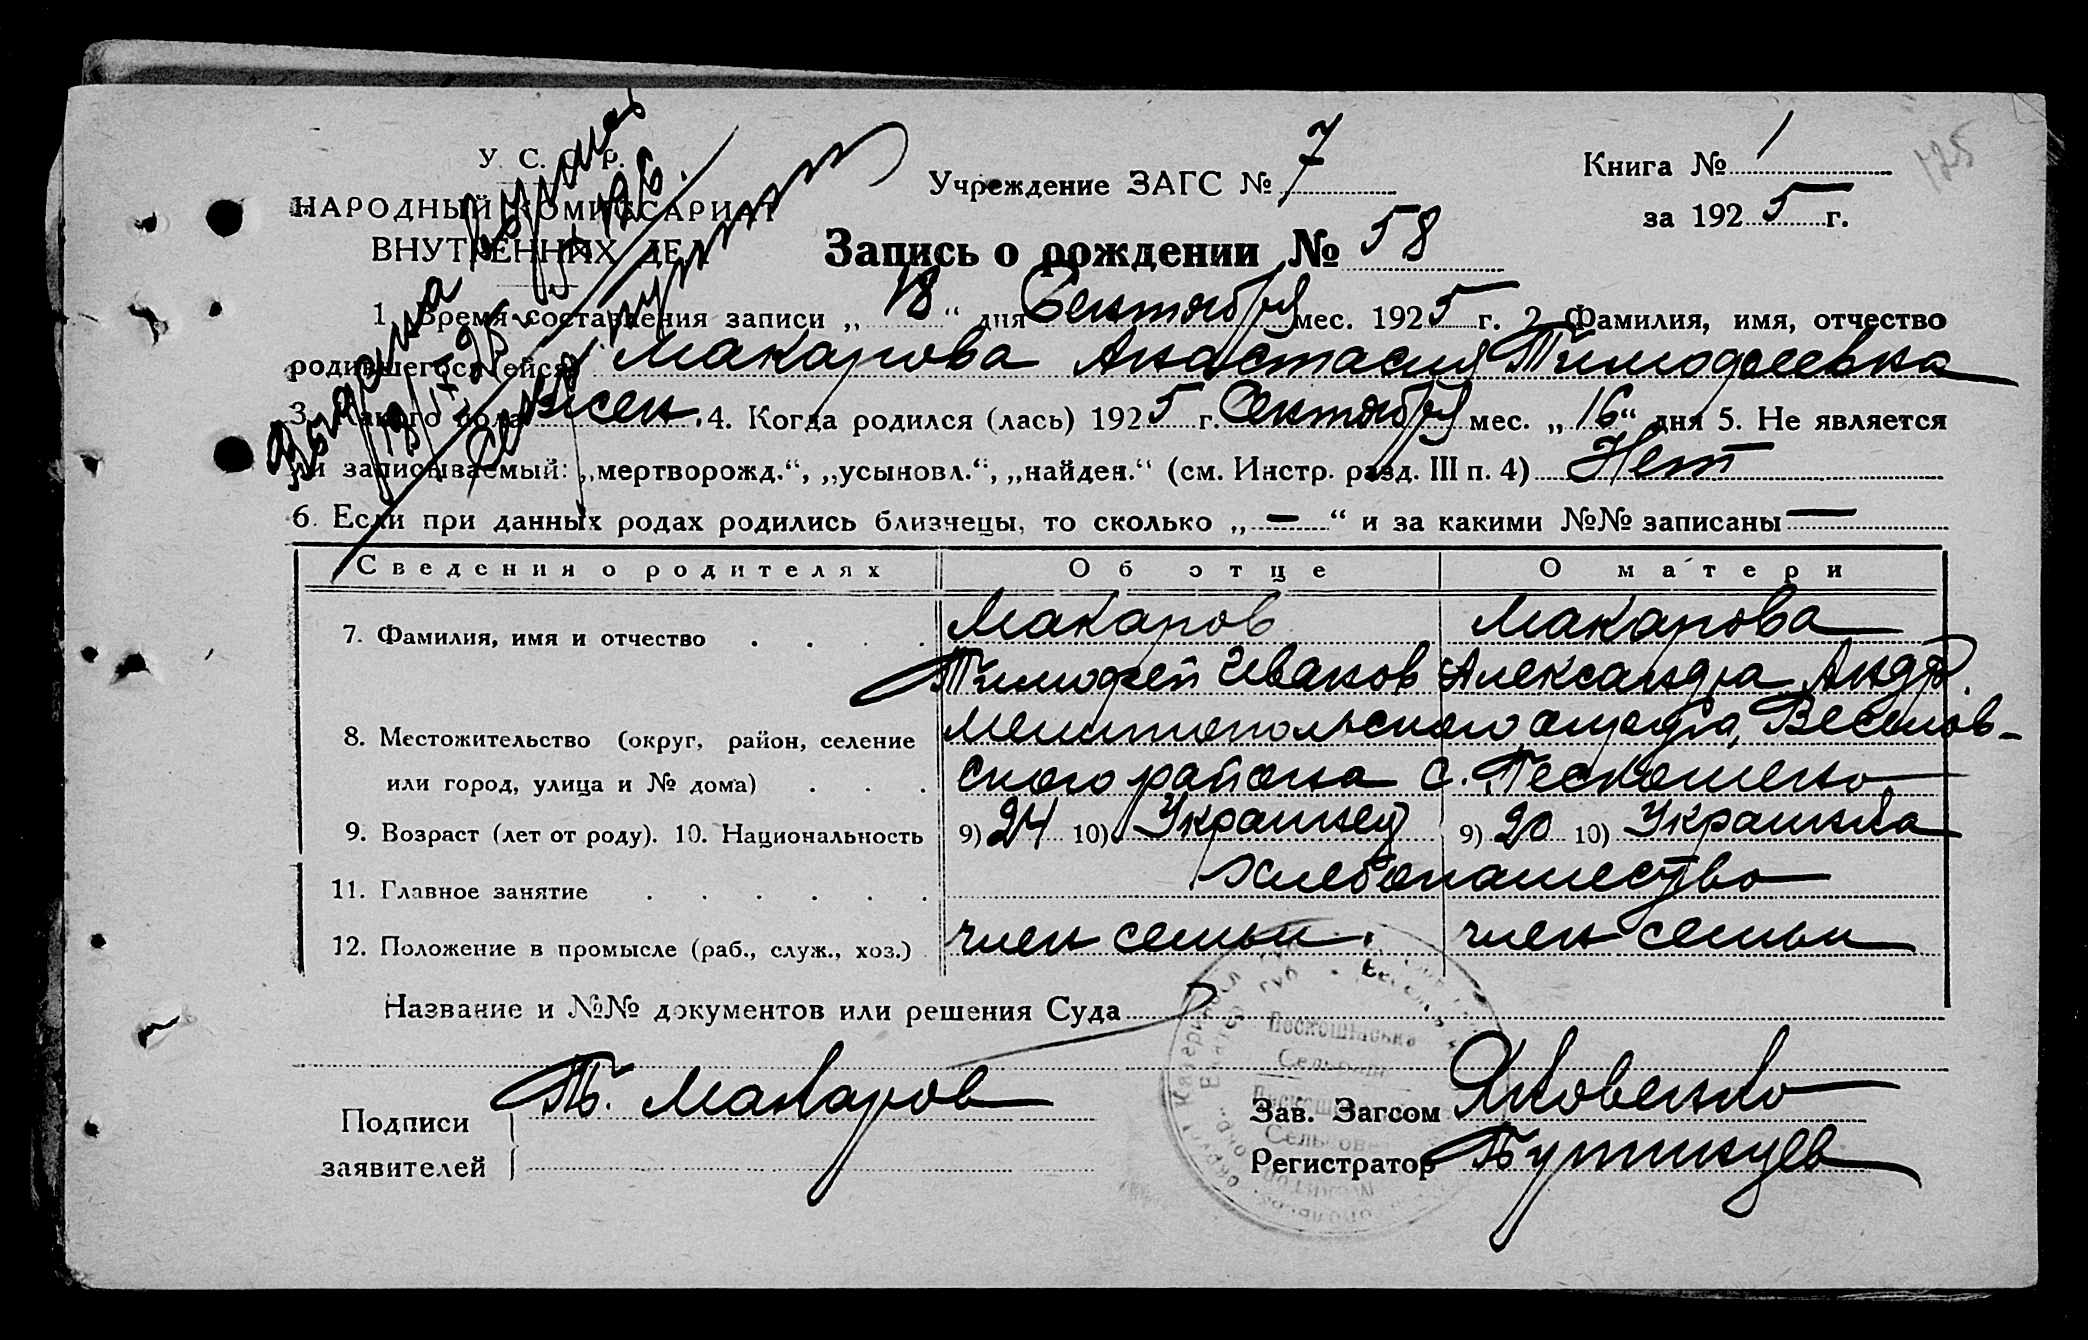 У. С. С. Р.
НАРОДНЫЙ КОМИССАРИАТ
ВНУТРЕННИХ ДЕЛ
Учреждение ЗАГС № 7
Книга № 1
за 1925 г.
125
Запись о рождении № 58
1. Время составления записи „18“ дня Сентября мес. 1925 г. 2. Фамилия, имя, отчество
родившегося (ейся) Макарова Анастасия Тимофеевна
3. Какого пола жен. 4. Когда родился (лась) 1925 г. Сентября мес. „16“ дня 5. Не является
ли записываемый: „мертворожд.“, „усыновл.“, „найден.“ (см. Инстр. разд. III п. 4) Нет
6. Если при данных родах родились близнецы, то сколько „—“ и за какими №№ записаны —
Сведения о родителях Об отце О матери
7. Фамилия, имя и отчество . . . . Макаров Макарова
Тимофей Иванов Александра Андр.
8. Местожительство (округ, район, селение Мелитопольского округа, Веселов-
или город, улица и № дома) . . . ского района с.
9. Возраст (лет от роду). 10. Национальность 9) 24 10) Украинец 9) 20 10) Украинка
11. Главное занятие . . . . . . Хлебопашество
12. Положение в промысле (раб., служ., хоз.) член семьи. член семьи
Название и №№ документов или решения Суда
Подписи
заявителей
Т. Макаров
Зав. Загсом Яковенко
Регистратор